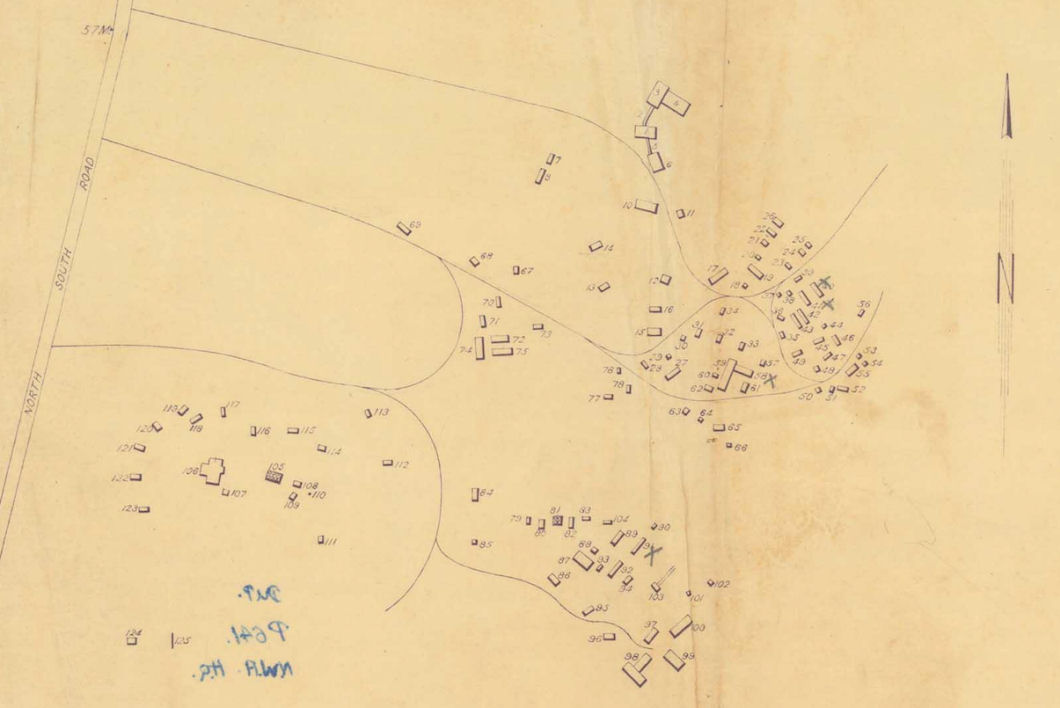 57M.
NORTH SOUTH ROAD
N
7
8
10
11
14
13
12
16
15
17
18
19
69
68
67
70
71
72
73
74
75
76
77
78
26
22
21
20
25
24
23
34
31
30
32
33
29
28
27
59
60
58
57
62
61
63
64
65
66
56
44
42
43
46
45
47
49
48
53
54
55
50
51
52
119
117
118
120
116
115
114
113
112
121
122
123
106
107
105
108
109
110
111
84
85
79
80
81
82
83
104
89
90
88
87
93
92
94
86
95
96
97
98
99
100
101
102
103
124
125
DUP.
P641.
NWA. HQ.